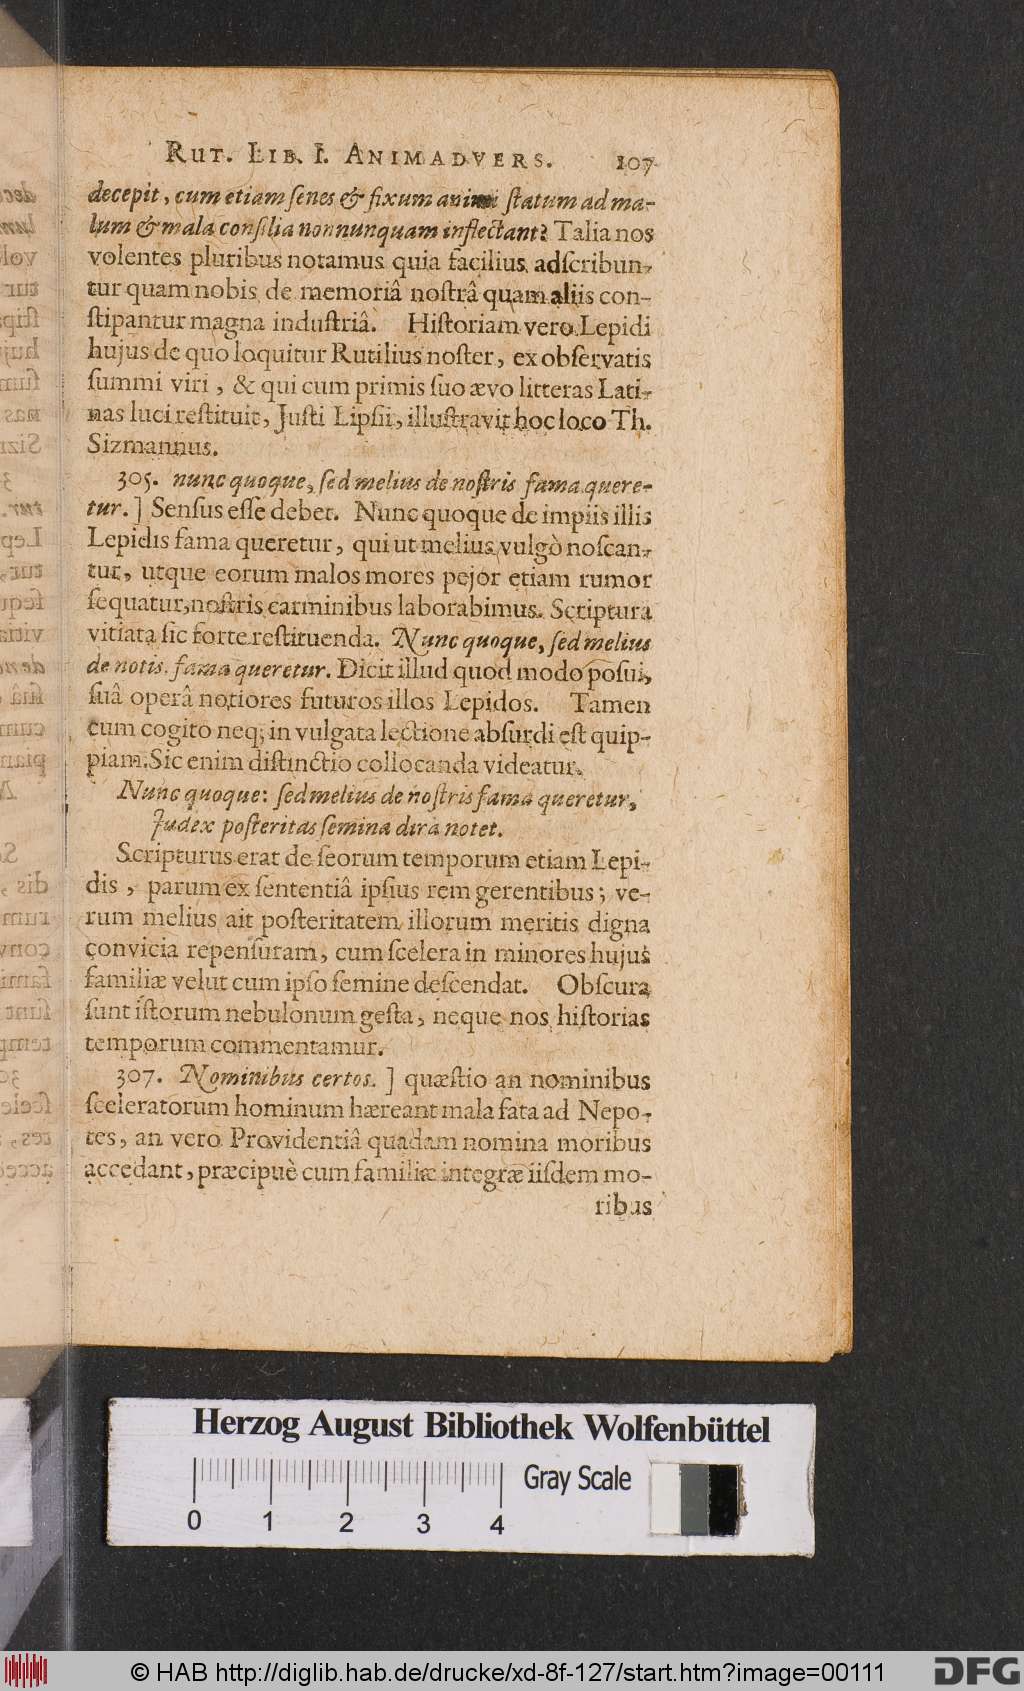 RUT. LIB. I. ANIMADVERS. 107
decepit, cum etiam ſenes & fixum animi ſtatum ad ma-
lum & mala conſilia nonnunquam inflectant? Talia nos
volentes pluribus notamus quia facilius adſcribun-
tur quam nobis de memoriâ noſtrâ quam aliis con-
ſtipantur magna induſtriâ. Hiſtoriam vero Lepidi
hujus de quo loquitur Rutilius noſter, ex obſervatis
ſummi viri, & qui cum primis ſuo ævo litteras Lati-
nas luci reſtituit, Juſti Lipſii, illuſtravit hoc loco Th.
Sizmannus.
305. nunc quoque, ſed melius de noſtris fama quere-
tur.] Senſus eſſe debet. Nunc quoque de impiis illis
Lepidis fama queretur, qui ut melius vulgò noſcan-
tur, utque eorum malos mores pejor etiam rumor
ſequatur, noſtris carminibus laborabimus. Scriptura
vitiata ſic forte reſtituenda. Nunc quoque, ſed melius
de notis fama queretur. Dicit illud quod modo poſui,
ſuâ operâ notiores futuros illos Lepidos. Tamen
cum cogito neq; in vulgata lectione abſurdi eſt quip-
piam. Sic enim diſtinctio collocanda videatur.
Nunc quoque: ſed melius de noſtris fama queretur,
Judex poſteritas ſemina dira notet.
Scripturus erat de ſeorum temporum etiam Lepi-
dis, parum ex ſententiâ ipſius rem gerentibus; ve-
rum melius ait poſteritatem illorum meritis digna
convicia repenſuram, cum ſcelera in minores hujus
familiæ velut cum ipſo ſemine deſcendat. Obſcura
ſunt iſtorum nebulonum geſta, neque nos hiſtorias
temporum commentamur.
307. Nominibus certos.] quæſtio an nominibus
ſceleratorum hominum hæreant mala fata ad Nepo-
tes, an vero Providentiâ quadam nomina moribus
accedant, præcipuè cum familiæ integræ iiſdem mo-
ribus
Herzog August Bibliothek Wolfenbüttel
Gray Scale
0 1 2 3 4
© HAB http://diglib.hab.de/drucke/xd-8f-127/start.htm?image=00111
DFG